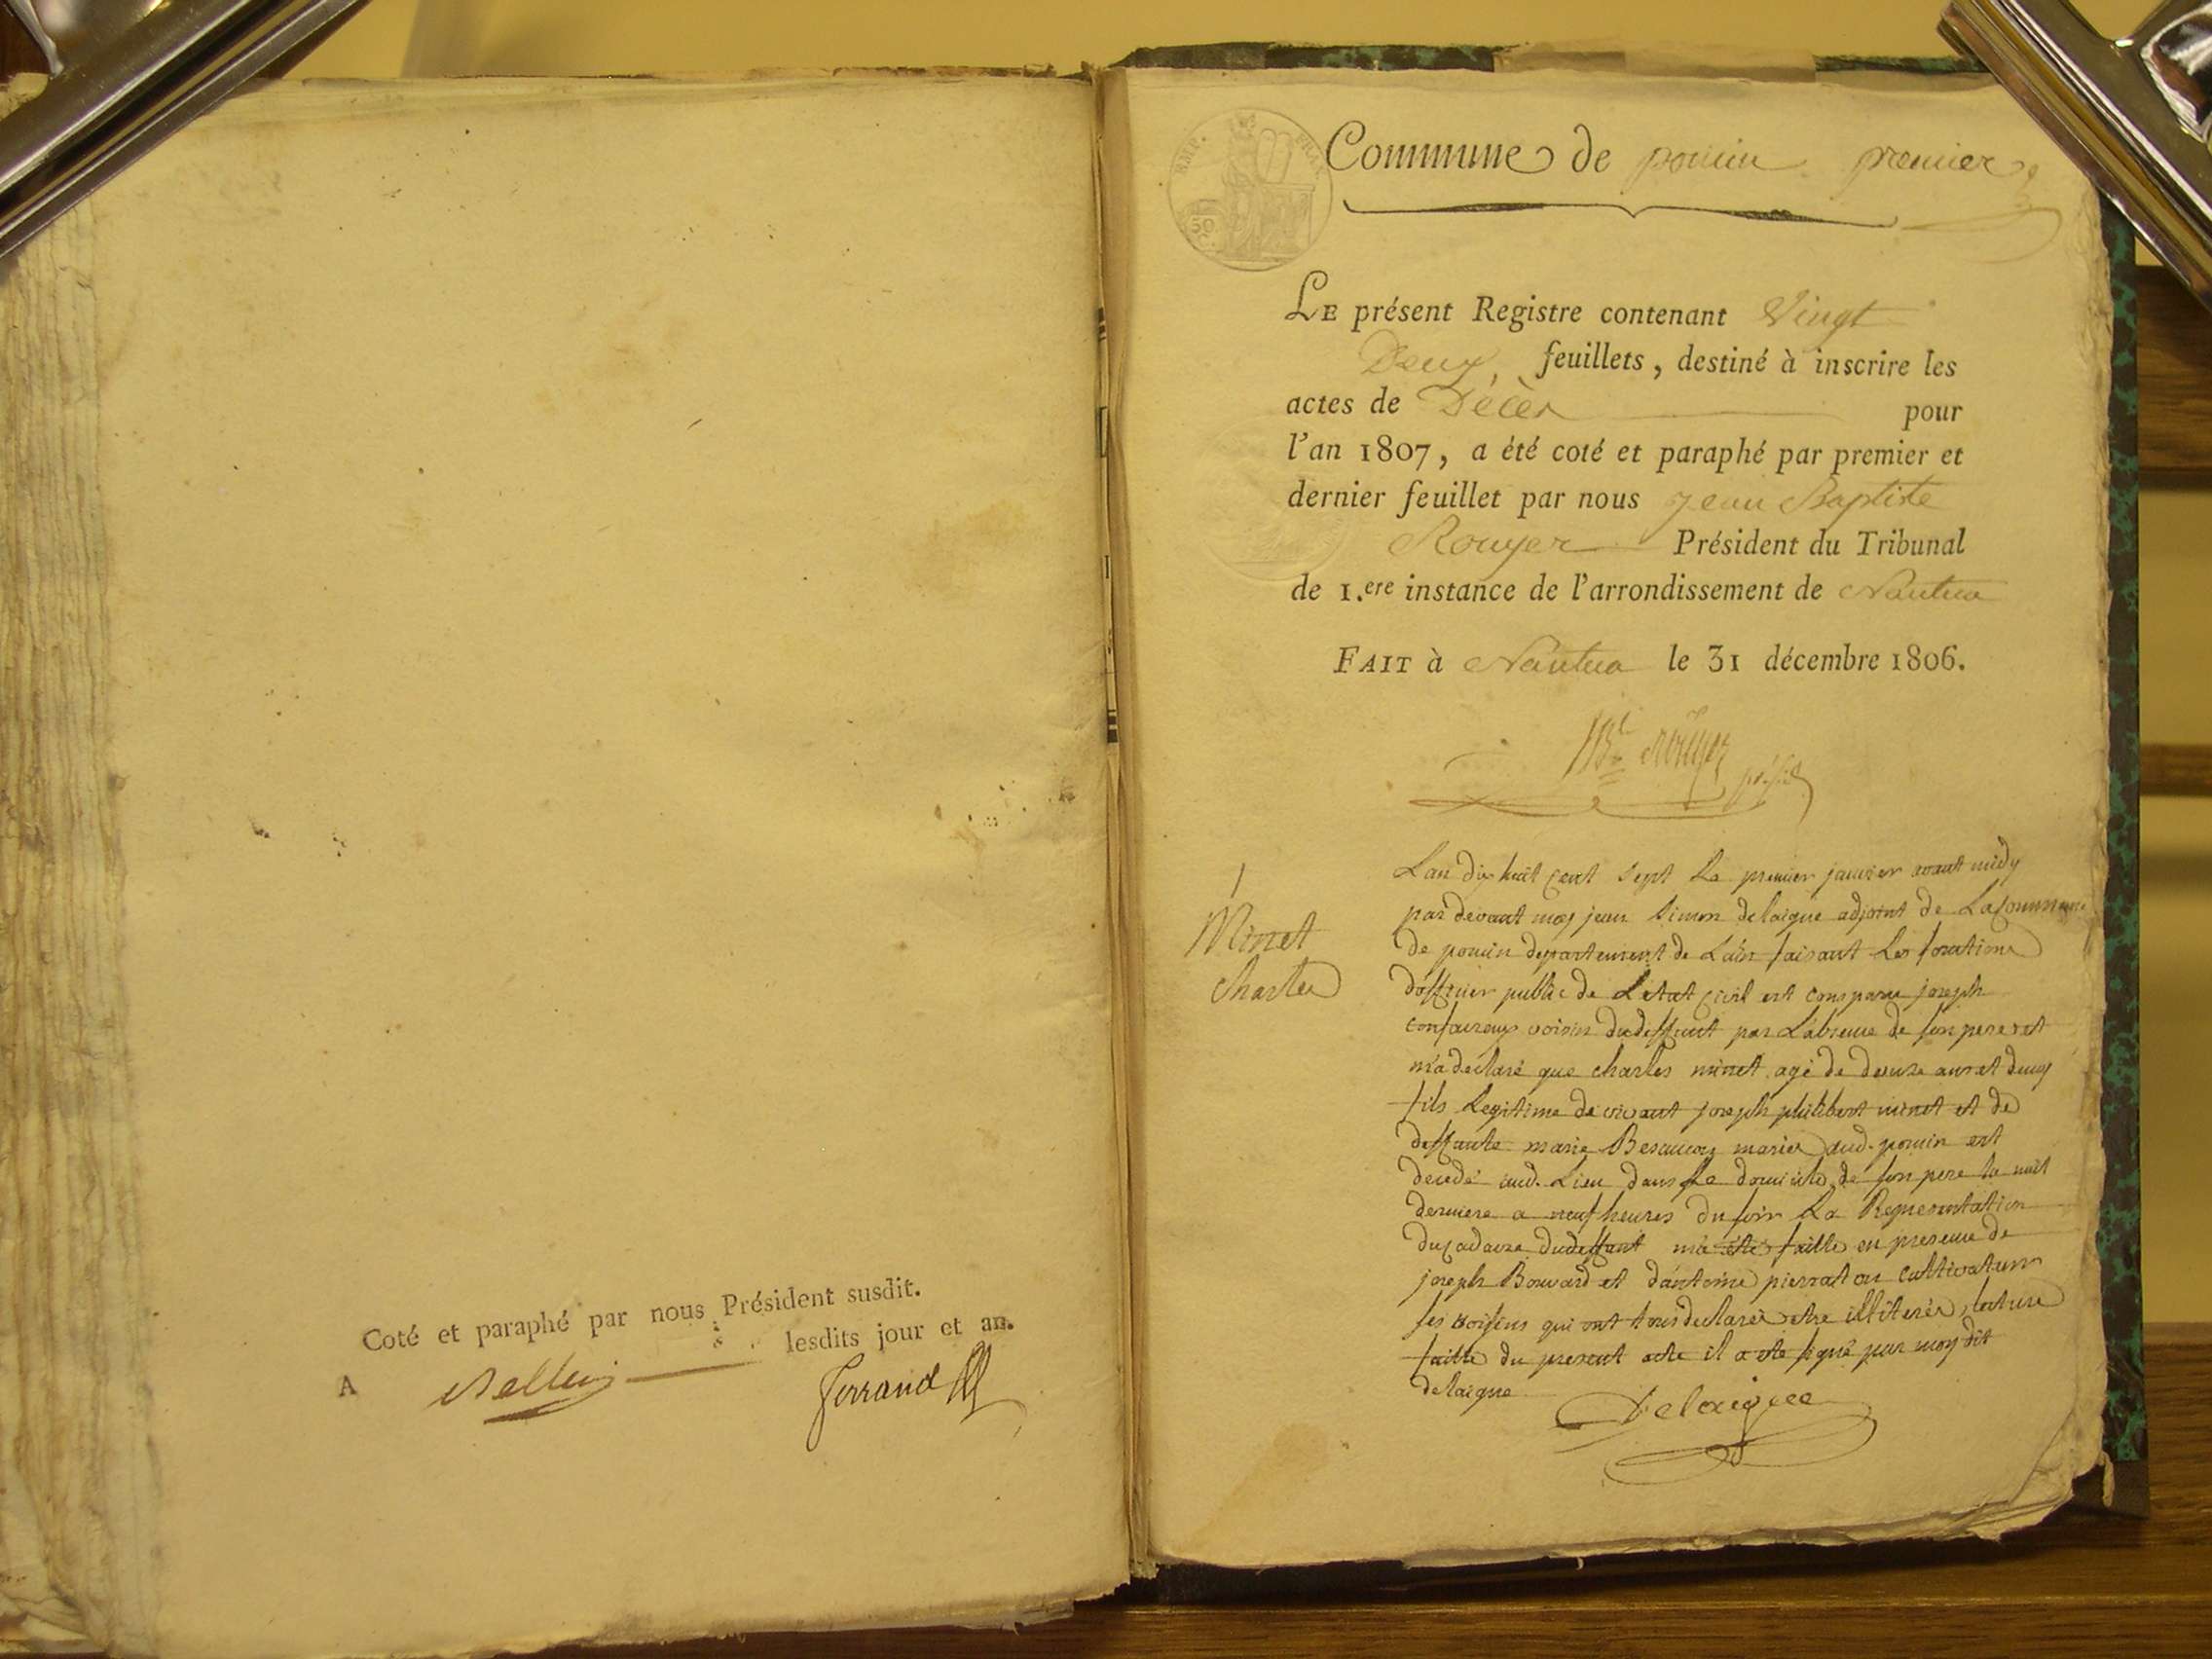 Coté et paraphé par nous Président susdit.
A Belley lesdits jour et an.
Ferrand
EMP. FRA
50 C.
Commune de pouin premier
LE présent Registre contenant Vingt
Deux feuillets, destiné à inscrire les
actes de Décès pour
l'an 1807, a été coté et paraphé par premier et
dernier feuillet par nous Jean Baptiste
Rouyer Président du Tribunal
de 1.ere instance de l'arrondissement de Nantua
FAIT à Nantua le 31 décembre 1806.
JBte Rouyer présid
1
Minet
Charles
Lan dix huit cent sept Le premier janvier avant midy
par devant moy jean Simon delaigue adjoint de La Commune
de pouin departement de Lain faisant Les fonctions
dofficier public de Letat Civil est comparu joseph
voisin du deffunt par Labsence de son pere et
m'a declaré que charles minet agé de douze ans et demy
fils Legitime de vivant joseph philibert minet et de
deffunte marie Besancon mariés aud. pouin est
decedé aud. Lieu dans Le domicile de son pere la nuit
derniere a neuf heures du soir La Representation
du cadavre du deffunt m'a été faitte en presence de
joseph Bouvard et d'antoine pierraton cultivateurs
ses voisins qui ont tous declarés etre illiterés, lecture
faitte du present acte il a ete signé par moy dit
delaigue
Delaigue